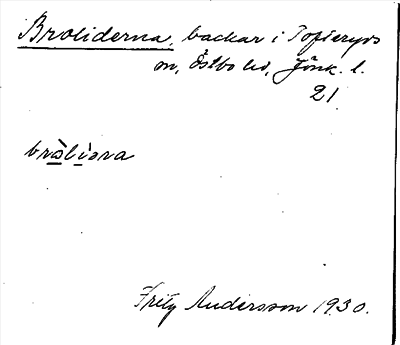 Broliderna, backar i Tofteryds
sn, Östbo hd, Jönk. l.
21.
bròlìəra
Fritz Andersson 1930.